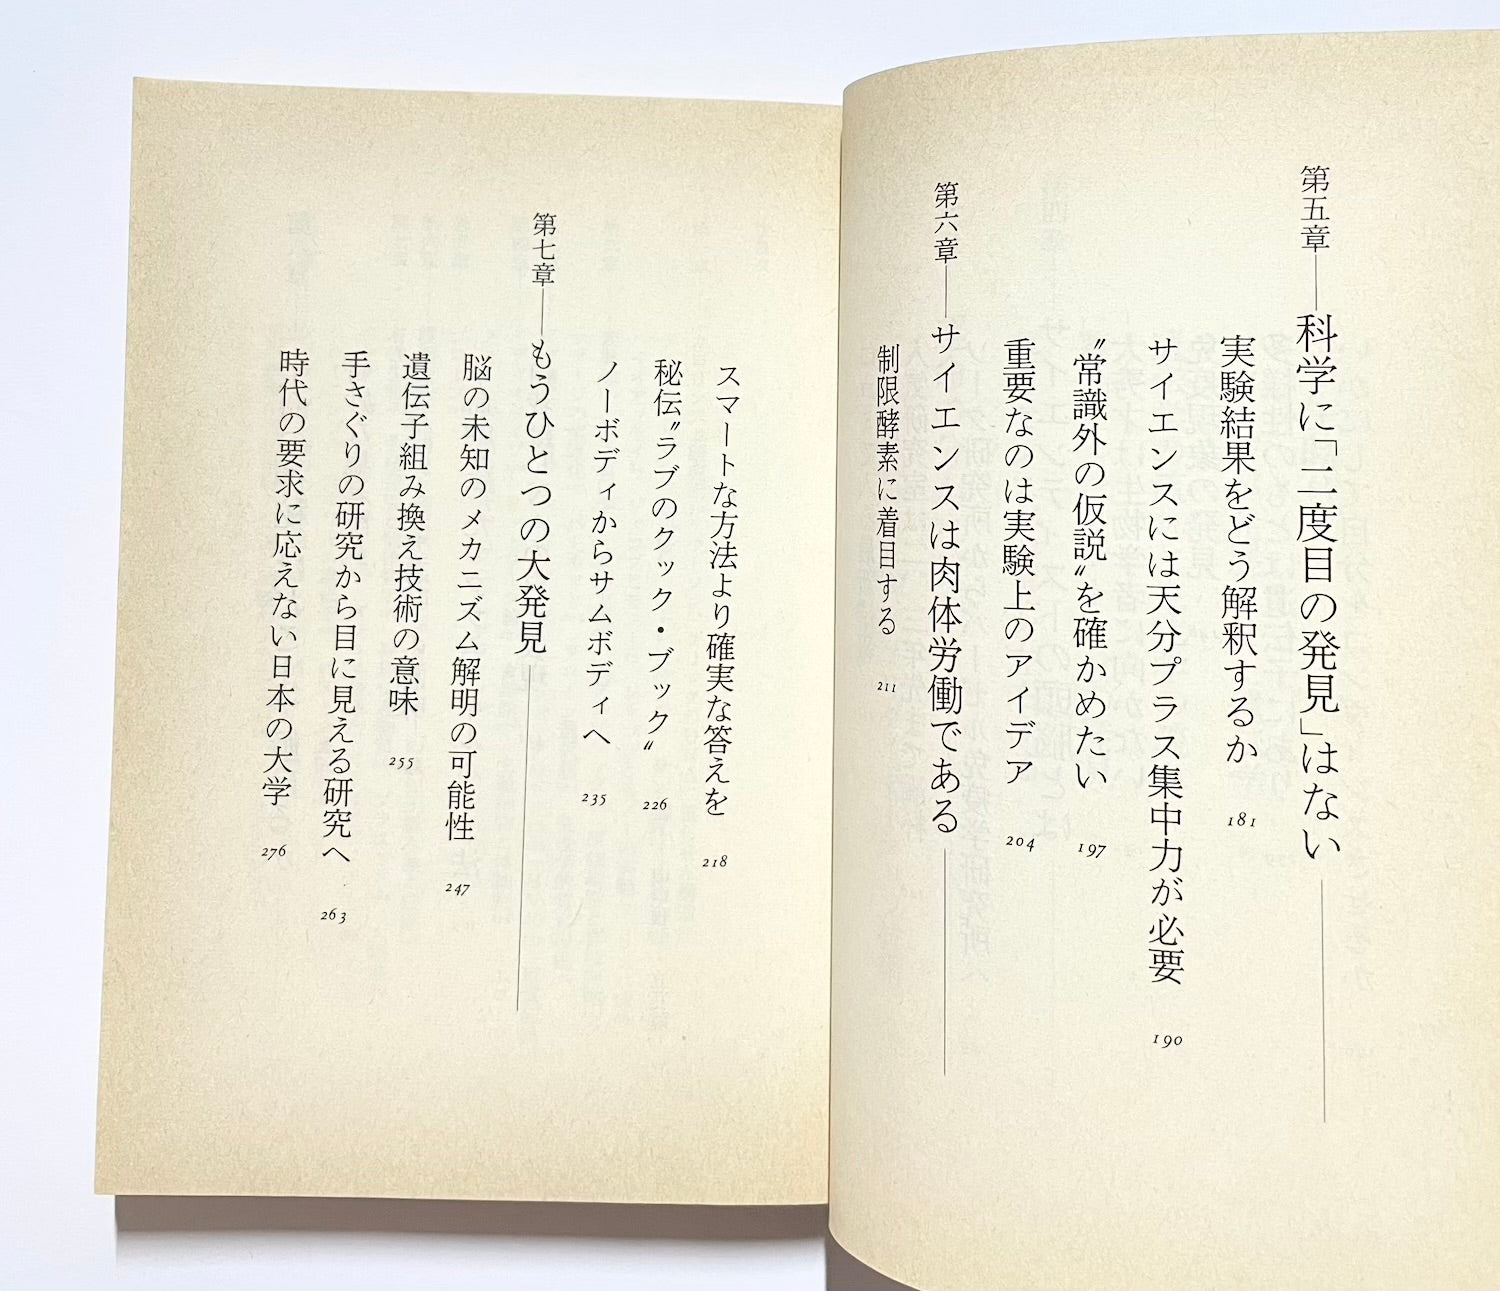 第五章――科学に「二度目の発見」はない――
実験結果をどう解釈するか 181
サイエンスには天分プラス集中力が必要 190
〝常識外の仮説〟を確かめたい 197
重要なのは実験上のアイディア 204
第六章――サイエンスは肉体労働である――
制限酵素に着目する 211
スマートな方法より確実な答えを 218
秘伝〝ラブのクック・ブック〟 226
ノーボディからサムボディへ 235
第七章――もうひとつの大発見――
脳の未知のメカニズム解明の可能性 247
遺伝子組み換え技術の意味 255
手さぐりの研究から目に見える研究へ 263
時代の要求に応えない日本の大学 276